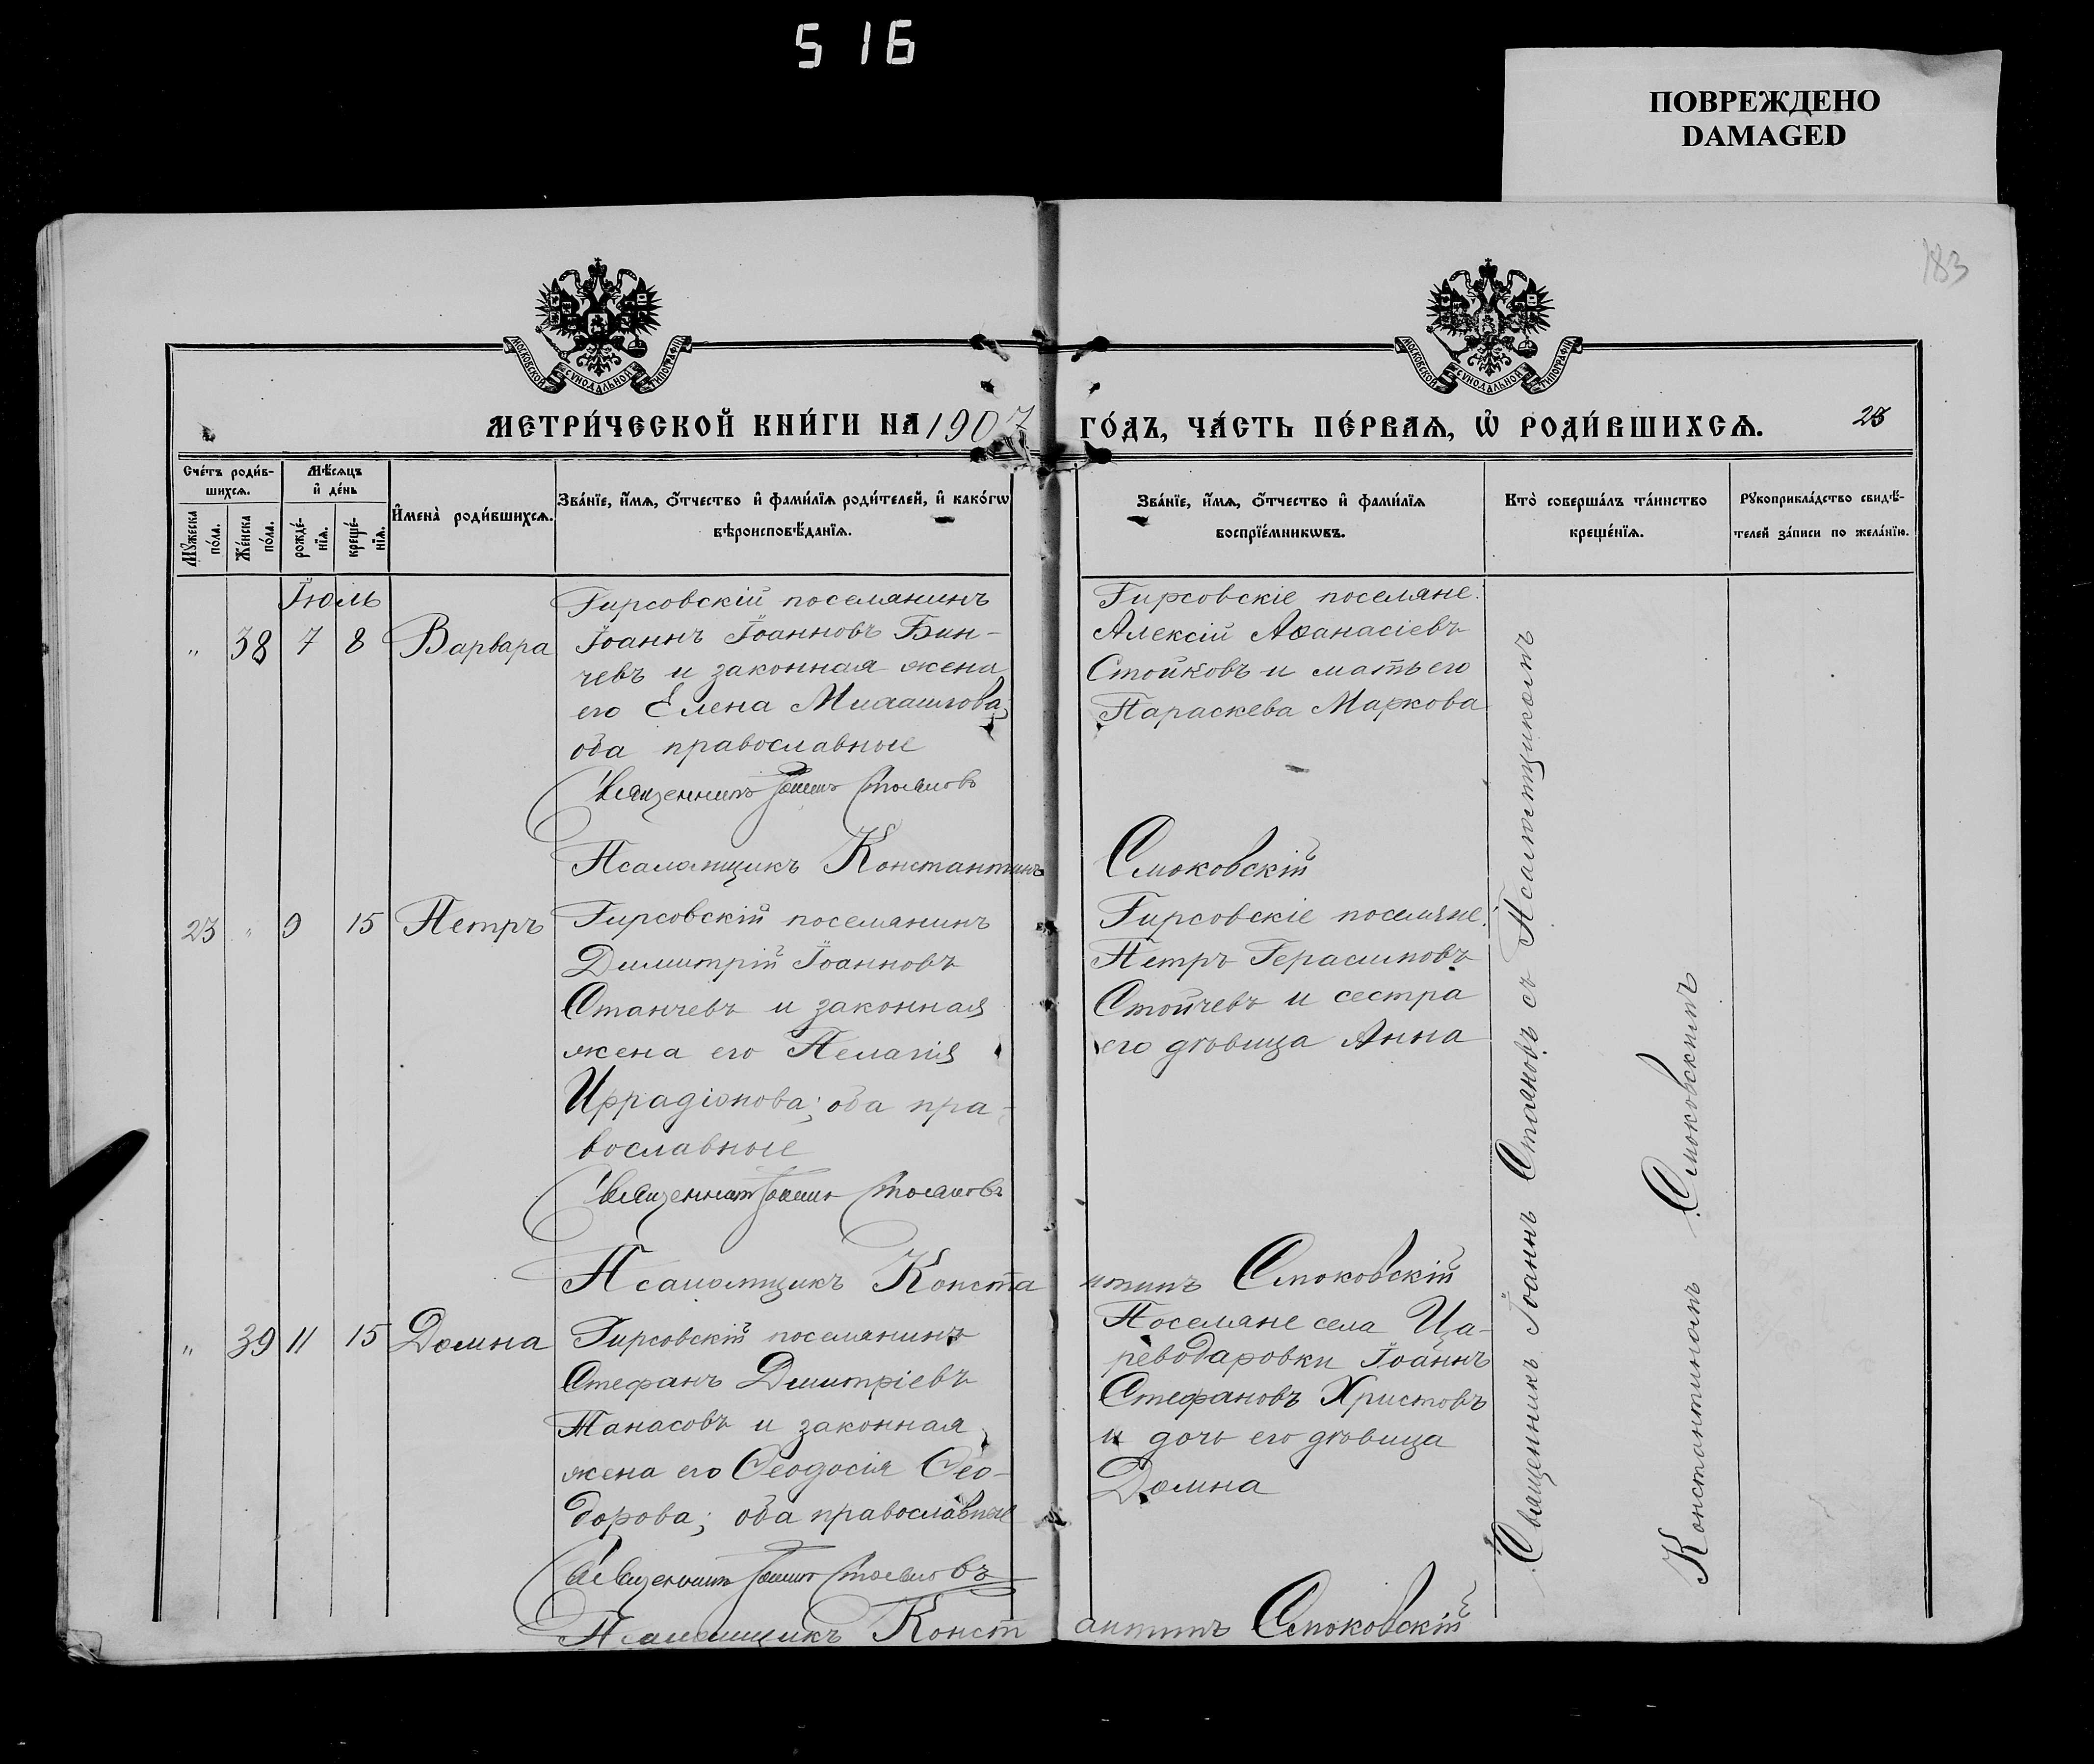 516
ПОВРЕЖДЕНО
DAMAGED
183
МОСКОВСКОЙ СѴНОДАЛЬНОЙ ТИПОГРАФІИ
МОСКОВСКОЙ СѴНОДАЛЬНОЙ ТИПОГРАФІИ
МЕТРИ́ЧЕСКОЙ КНИ́ГИ НА 1907
ГО́ДЪ, ЧА́СТЬ ПЕ́РВАѦ, Ѡ҆ РОДИ́ВШИХСѦ.
Сче́тъ роди́в-
шихсѧ.
Мѣ́сѧцъ
и҆ де́нь
Мꙋ́жеска
по́ла.
Же́нска
по́ла.
рожде́-
нїѧ.
креще́-
нїѧ.
И҆мена̀ роди́вшихсѧ.
Зва́нїе, и҆́мѧ, ѻ҆́тчество и҆ фами́лїѧ роди́телей, и҆ како́гѡ
вѣроисповѣ́данїѧ.
Зва́нїе, и҆́мѧ, ѻ҆́тчество и҆ фами́лїѧ
воспрїе́мникѡвъ.
Кто̀ соверша́лъ та́инство
креще́нїѧ.
Рꙋкоприкла́дство свидѣ́-
телей за́писи по жела́нїю.
Іюль
" 38 7 8 Варвара
Гирсовскій поселянинъ
Іоаннъ Іоанновъ Бин-
чевъ и законная жена
его Елена Михаилова;
оба православные
Священникъ Іоаннъ Стояновъ
Псаломщикъ Константинъ
Гирсовскіе поселяне:
Алексій Аѳанасіевъ
Стойковъ и мать его
Параскева Маркова
Смоковскій
23 " 9 15 Петръ
Гирсовскій поселянинъ
Димитрій Іоанновъ
Станчевъ и законная
жена его Пелагія
Иррадіонова; оба пра-
вославные
Священникъ Іоаннъ Стояновъ
Псаломщикъ Конста
Гирсовскіе поселяне:
Петръ Герасимовъ
Стойчевъ и сестра
его дѣвица Анна
нтинъ Смоковскій
" 39 11 15 Домна
Гирсовскій поселянинъ
Стефанъ Димитріевъ
Танасовъ и законная
жена его Ѳеодосія Ѳео-
дорова; оба православные
Священникъ Іоаннъ Стояновъ
Псаломщикъ Конст
Поселяне села Ца-
реводаровки Іоаннъ
Стефановъ Христовъ
и дочь его дѣвица
Домна
антинъ Смоковскій
Священникъ Іоаннъ Стояновъ съ Псаломщикомъ
Константиномъ Смоковскимъ